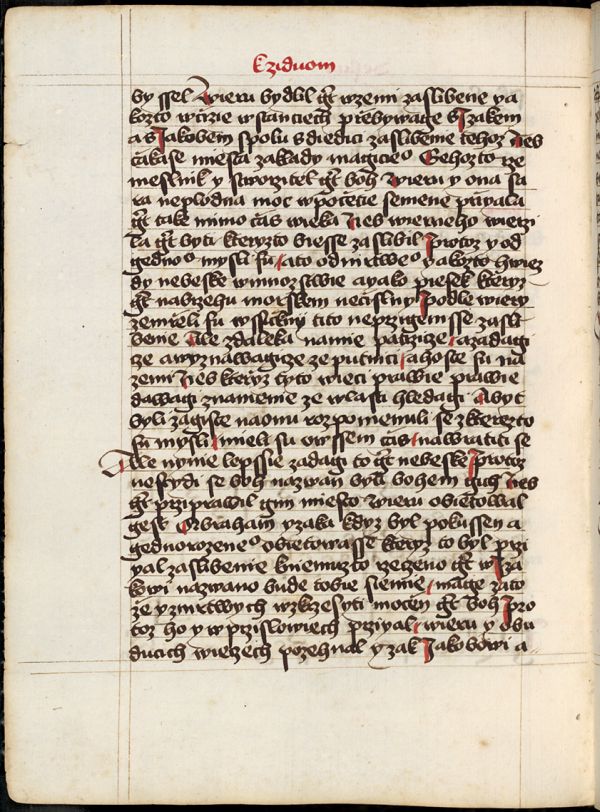 K ziduom
by ssel Wieru bydlil gt wzemi zaslibene ya
kozto wcizie wstanciech przebywage s Izakem
a s Iakobem spolu s diedici zaslibenie tehoz Nebs
czakase miesta zaklady magicieo Gehozto rze
meslnik y stworzitel gt boh Wieru y ona sa
ra neplodna moc wpocetie semene przyala
gt take mimo czas wieka Nebs wierneho wierzi
la gt byti kteryzto biesse zaslibil Protoz y od
gednoo mysli su ato odmrtweo yakozto hwiez
dy nebeske wmnozstwie a yako piesek kteryz
gt nabrzehu morskem necislny Podle wiery
zemrzeli su wssickni tito neprzigemsse zasli
benie Ale zdaleka nanie patrzicze a zadagi
cze a wyznawagicze ze putnici a hoste su na
zemi Nebs kteryz tyto wieci prawie prawie
dawagi znamenie ze wlasti hledagi A byt
byli zagiste naonu rozpomenuli se z kterezto
su mysli mieli su owssem czas nawratiti se
Ale nynie lepssie zadagi to gt nebeske Protoz
nestydi se boh nazwan byti bohem gich Nebs
gt przyprawil gim miesto Wieru obietowal
gest Abraham yzaka kdyz byl pokussen a
gednorozeneo obietowasse kteryz to byl przi
yal zaslibenie kniemuzto rzeczeno gt w Iza
kowi nazwano bude tobie siemie mage zato
ze y zmrtwych wzkrzesyti mocen gt boh Pro
toz ho y w przislowiech przyyal wieru y o bu
ducich wieczech pozehnal yzak Iakobowi a